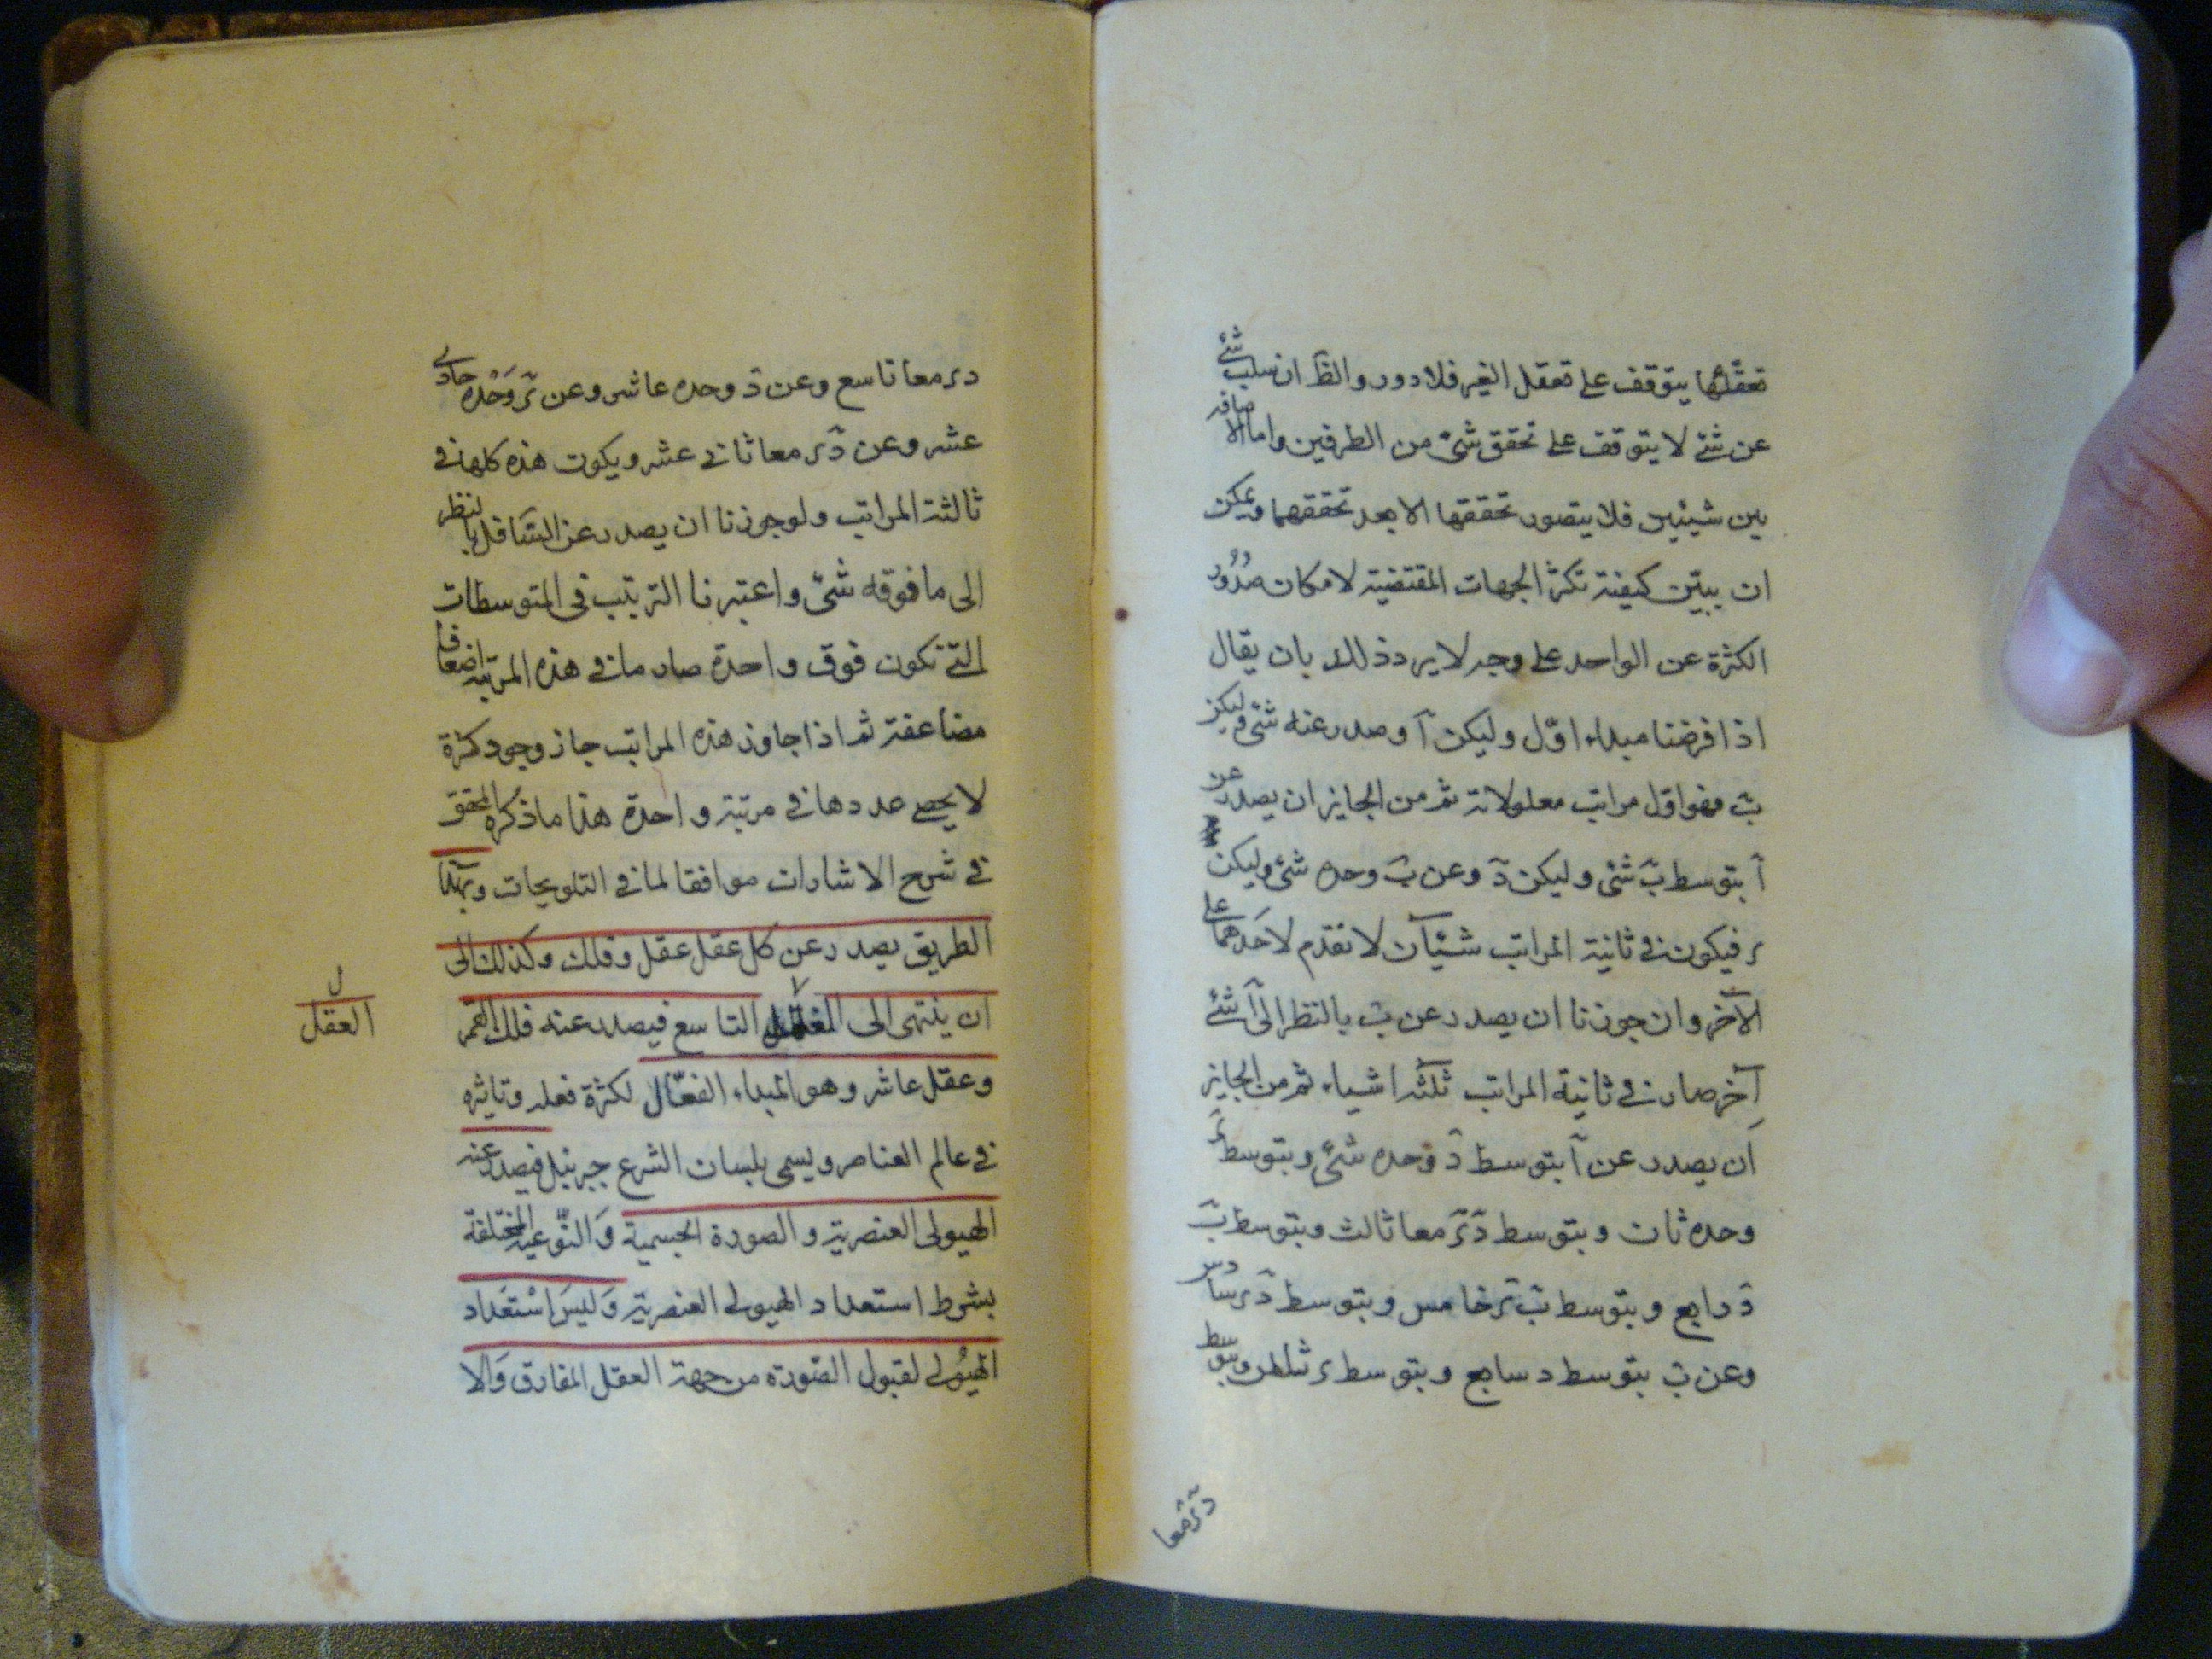 تعقلها يتوقف على تعقل الغير فلا دور والظ ان سلب شئ
عن شئ لا يتوقف على تحقق شئ من الطرفين واما الاضافة
بين شيئين فلا يتصور تحققها الا بعد تحققهما ويمكن
ان يبين كيفية تكثر الجهات المقتضية لامكان صدور
الكثرة عن الواحد على وجه لا يرد ذلك بان يقال
اذا فرضنا مبداء اول وليكن آ وصدر عنه شئ وليكن
ب فهو اول مراتب معلولاته ثم من الجايز ان يصدر عن
آ بتوسط ب شئ وليكن د وعن ب وحده شئ وليكن
ر فيكون في ثانية المراتب شيآن لا تقدم لاحدهما على
الآخر وان جوزنا ان يصدر عن ب بالنظر الى آ شئ
آخر صار في ثانية المراتب ثلثة اشياء ثم من الجايز
ان يصدر عن آ بتوسط د وحده شئ وبتوسط ر
وحده ثان وبتوسط د ر معا ثالث وبتوسط ب
د رابع وبتوسط ب ر خامس وبتوسط د ر سادس
وعن ب بتوسط د سابع وبتوسط ر ثامن وبتوسط
د ر معا
د ر معا تاسع وعن د وحده عاشر وعن ر وحده حادى
عشر وعن د ر معا ثانى عشر ويكون هذه كلها في
ثالثة المراتب ولو جوزنا ان يصدر عن السافل بالنظر
الى ما فوقه شئ واعتبرنا الترتيب في المتوسطات
التى تكون فوق واحدة صار ما في هذه المرتبة اضعافا
مضاعفة ثم اذا جاوز هذه المراتب جاز وجود كثرة
لا يحصى عددها في مرتبة واحدة هذا ما ذكره المحقق
في شرح الاشارات موافقا لما في التلويحات وبهذا
الطريق يصدر عن كل عقل عقل وفلك وكذلك الى
ان ينتهى الى العقل التاسع فيصدر عنه فلك القمر
العقل
وعقل عاشر وهو المبداء الفعال لكثرة فعله وتاثيره
في عالم العناصر ويسمى بلسان الشرع جبرئيل فيصدر عنه
الهيولى العنصرية والصورة الجسمية والنوعية المختلفة
بشرط استعداد الهيولى العنصرية وليس استعداد
الهيولى لقبول الصورة من جهة العقل المفارق والا